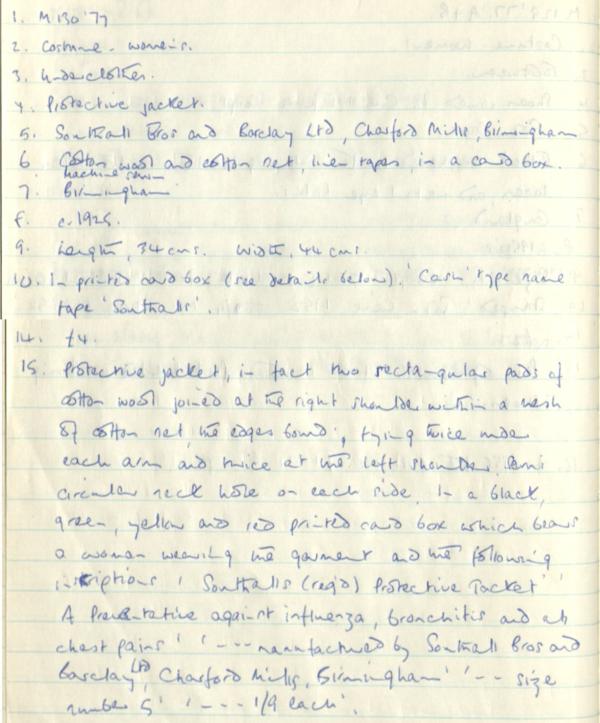 1. M130'77
2. Costume - women's.
3. Underclothes.
4. Protective jacket.
5. Southall Bros and Barclay Ltd, Charford Mills, Birmingham
6 Cotton wool and cotton net, linen tapes, in a card box.
machine sewn
7. Birmingham
8. c.1925.
9. Length, 34 cms. Width, 44 cms.
10. In printed card box (see details below). 'Cash' type name
tape 'Southalls'.
14. £4.
15. Protective jacket, in fact two rectangular pads of
cotton wool joined at the right shoulder within a mesh
of cotton net, the edges bound, tying twice under
each arm and twice at the left shoulder. Semi
circular neck hole on each side. In a black,
green, yellow and red printed card box which bears
a woman wearing the garment and the following
inscriptions 'Southalls (regd) Protective Jacket' '
A Preventative against influenza, bronchitis and all
chest pains' '--- manufactured by Southall Bros and
Barclay Ltd, Charford Mills, Birmingham' '-- size
number 5' '--- 1/9 each'.